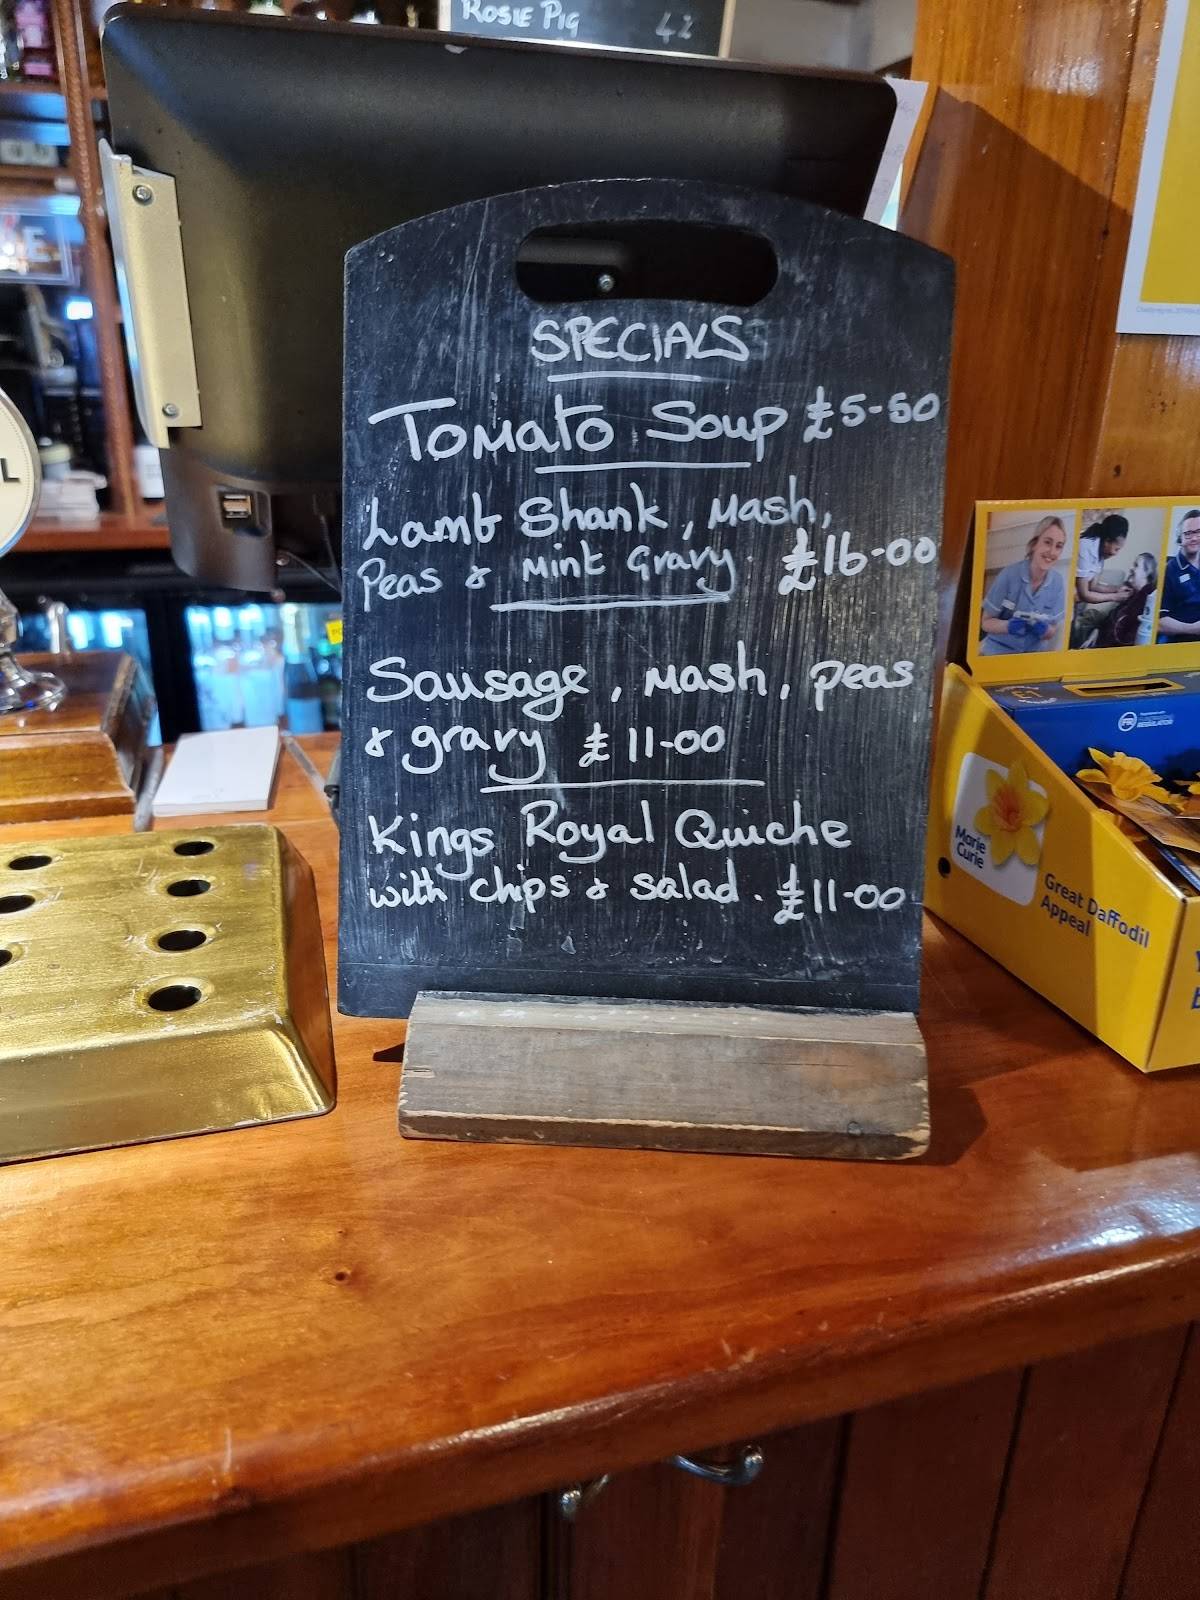 ROSIE PIG 42
SPECIALS
TOMATO SOUP £5-50
Lamb Shank, Mash,
Peas & Mint Gravy. £16-00
Sausage, Mash, peas
& gravy £11-00
Kings Royal Quiche
with chips & salad. £11-00
L
E
FR
REGULATOR
Marie
Curie
Great Daffodil
Appeal